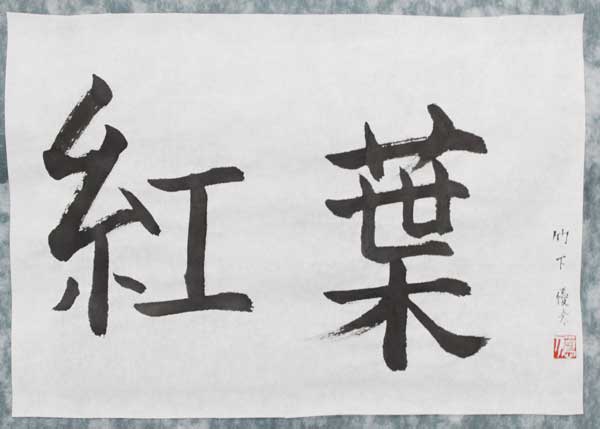 紅葉
竹下優